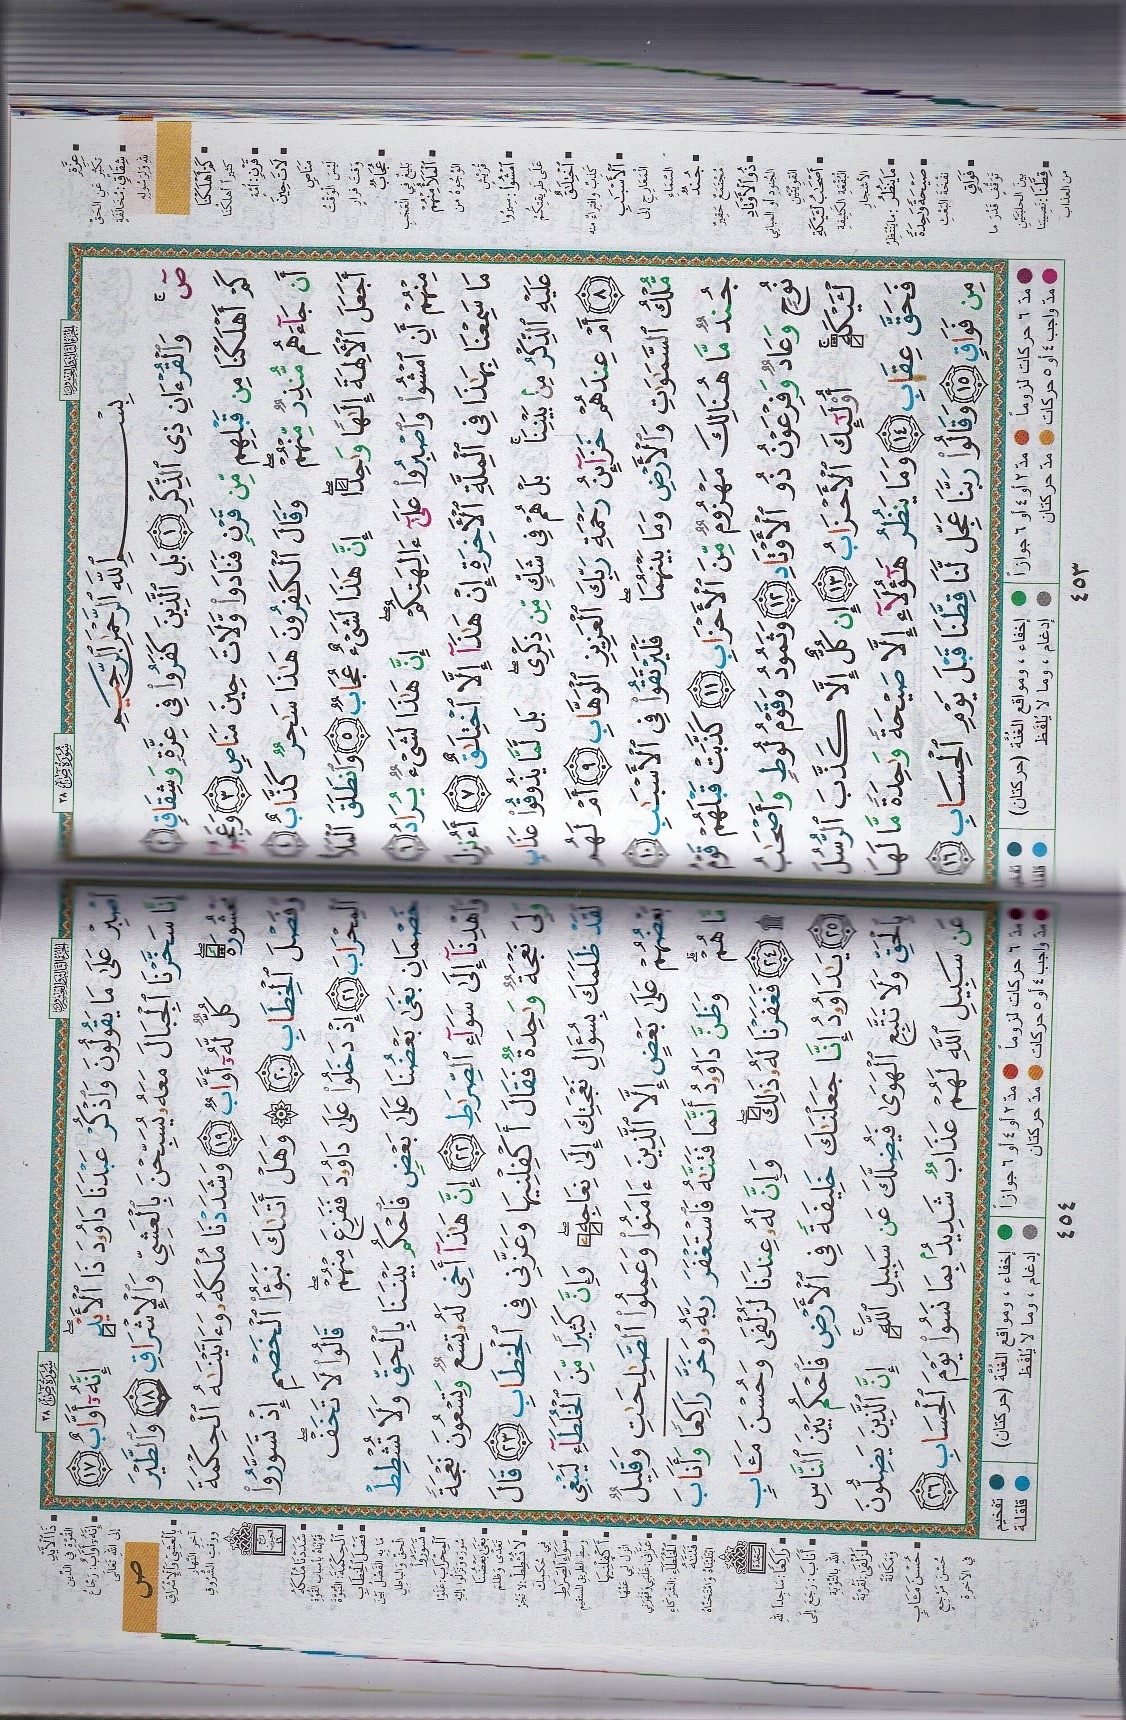 سُورَةُ ص ٣٨
الجزء الثالث والعشرون
بِسْمِ ٱللَّهِ ٱلرَّحْمَٰنِ ٱلرَّحِيمِ
صٓ وَٱلْقُرْءَانِ ذِى ٱلذِّكْرِ ١ بَلِ ٱلَّذِينَ كَفَرُوا۟ فِى عِزَّةٍ وَشِقَاقٍ ٢
كَمْ أَهْلَكْنَا مِن قَبْلِهِم مِّن قَرْنٍ فَنَادَوا۟ وَّلَاتَ حِينَ مَنَاصٍ ٣ وَعَجِبُوٓا۟
أَن جَآءَهُم مُّنذِرٌ مِّنْهُمْ وَقَالَ ٱلْكَٰفِرُونَ هَٰذَا سَٰحِرٌ كَذَّابٌ ٤
أَجَعَلَ ٱلْءَالِهَةَ إِلَٰهًا وَٰحِدًا إِنَّ هَٰذَا لَشَىْءٌ عُجَابٌ ٥ وَٱنطَلَقَ ٱلْمَلَأُ
مِنْهُمْ أَنِ ٱمْشُوا۟ وَٱصْبِرُوا۟ عَلَىٰٓ ءَالِهَتِكُمْ إِنَّ هَٰذَا لَشَىْءٌ يُرَادُ ٦
مَا سَمِعْنَا بِهَٰذَا فِى ٱلْمِلَّةِ ٱلْءَاخِرَةِ إِنْ هَٰذَآ إِلَّا ٱخْتِلَٰقٌ ٧ أَءُنزِلَ
عَلَيْهِ ٱلذِّكْرُ مِنۢ بَيْنِنَا بَلْ هُمْ فِى شَكٍّ مِّن ذِكْرِى بَل لَّمَّا يَذُوقُوا۟ عَذَابِ
٨ أَمْ عِندَهُمْ خَزَآئِنُ رَحْمَةِ رَبِّكَ ٱلْعَزِيزِ ٱلْوَهَّابِ ٩ أَمْ لَهُم
مُّلْكُ ٱلسَّمَٰوَٰتِ وَٱلْأَرْضِ وَمَا بَيْنَهُمَا فَلْيَرْتَقُوا۟ فِى ٱلْأَسْبَٰبِ ١٠
جُندٌ مَّا هُنَالِكَ مَهْزُومٌ مِّنَ ٱلْأَحْزَابِ ١١ كَذَّبَتْ قَبْلَهُمْ قَوْمُ
نُوحٍ وَعَادٌ وَفِرْعَوْنُ ذُو ٱلْأَوْتَادِ ١٢ وَثَمُودُ وَقَوْمُ لُوطٍ وَأَصْحَٰبُ
لْـَٔيْكَةِ أُو۟لَٰٓئِكَ ٱلْأَحْزَابُ ١٣ إِن كُلٌّ إِلَّا كَذَّبَ ٱلرُّسُلَ
فَحَقَّ عِقَابِ ١٤ وَمَا يَنظُرُ هَٰٓؤُلَآءِ إِلَّا صَيْحَةً وَٰحِدَةً مَّا لَهَا
مِن فَوَاقٍ ١٥ وَقَالُوا۟ رَبَّنَا عَجِّل لَّنَا قِطَّنَا قَبْلَ يَوْمِ ٱلْحِسَابِ ١٦
عِزَّةٍ
تكبّر عن الحق
شِقَاقٍ: مخالفة
لله ولرسوله
كَمْ أَهْلَكْنَا
كثيراً أهلكنا
قَرْنٍ: أمة
لَاتَ حِينَ
مَنَاصٍ
ليس الوقت
وقت فرار
عُجَابٌ
بليغ في العجب
ٱلْمَلَأُ مِنْهُمْ
الوجوه من
قريش
ٱمْشُوا: سيروا
على طريقتكم
ٱخْتِلَٰقٌ
كذب وافتراء منه
ٱلْأَسْبَٰبِ
المعارج إلى
السماء
جُندٌ
مجتمع حقير
ذُو ٱلْأَوْتَادِ
الجنود أو المباني
القوية
أَصْحَٰبُ لْـَٔيْكَةِ
البقعة الكثيفة
الأشجار
مَا يَنظُرُ: ما ينتظر
صَيْحَةً وَٰحِدَةً
نفخة البعث
فَوَاقٍ
توقف قدر ما
بين الحلبتين
قِطَّنَا: نصيبنا
من العذاب
مدّ ٦ حركات لزوماً
مدّ ٢ أو ٤ أو ٦ جوازاً
مدّ واجب ٤ أو ٥ حركات
مدّ حركتان
إخفاء، ومواقع الغُنَّة (حركتان)
إدغام، وما لا يُلفَظ
تفخيم
قلقلة
٤٥٣
الجزء الثالث والعشرون
سُورَةُ ص ٣٨
ٱصْبِرْ عَلَىٰ مَا يَقُولُونَ وَٱذْكُرْ عَبْدَنَا دَاوُۥدَ ذَا ٱلْأَيْدِ إِنَّهُۥٓ أَوَّابٌ ١٧
إِنَّا سَخَّرْنَا ٱلْجِبَالَ مَعَهُۥ يُسَبِّحْنَ بِٱلْعَشِىِّ وَٱلْإِشْرَاقِ ١٨ وَٱلطَّيْرَ
مَحْشُورَةً كُلٌّ لَّهُۥٓ أَوَّابٌ ١٩ وَشَدَدْنَا مُلْكَهُۥ وَءَاتَيْنَٰهُ ٱلْحِكْمَةَ
وَفَصْلَ ٱلْخِطَابِ ٢٠ وَهَلْ أَتَىٰكَ نَبَؤُا۟ ٱلْخَصْمِ إِذْ تَسَوَّرُوا۟
ٱلْمِحْرَابَ ٢١ إِذْ دَخَلُوا۟ عَلَىٰ دَاوُۥدَ فَفَزِعَ مِنْهُمْ قَالُوا۟ لَا تَخَفْ
خَصْمَانِ بَغَىٰ بَعْضُنَا عَلَىٰ بَعْضٍ فَٱحْكُم بَيْنَنَا بِٱلْحَقِّ وَلَا تُشْطِطْ
وَٱهْدِنَآ إِلَىٰ سَوَآءِ ٱلصِّرَٰطِ ٢٢ إِنَّ هَٰذَآ أَخِى لَهُۥ تِسْعٌ وَتِسْعُونَ نَعْجَةً
وَلِىَ نَعْجَةٌ وَٰحِدَةٌ فَقَالَ أَكْفِلْنِيهَا وَعَزَّنِى فِى ٱلْخِطَابِ ٢٣ قَالَ
لَقَدْ ظَلَمَكَ بِسُؤَالِ نَعْجَتِكَ إِلَىٰ نِعَاجِهِۦ وَإِنَّ كَثِيرًا مِّنَ ٱلْخُلَطَآءِ لَيَبْغِى
بَعْضُهُمْ عَلَىٰ بَعْضٍ إِلَّا ٱلَّذِينَ ءَامَنُوا۟ وَعَمِلُوا۟ ٱلصَّٰلِحَٰتِ وَقَلِيلٌ
مَّا هُمْ وَظَنَّ دَاوُۥدُ أَنَّمَا فَتَنَّٰهُ فَٱسْتَغْفَرَ رَبَّهُۥ وَخَرَّ رَاكِعًا وَأَنَابَ
۩ ٢٤ فَغَفَرْنَا لَهُۥ ذَٰلِكَ وَإِنَّ لَهُۥ عِندَنَا لَزُلْفَىٰ وَحُسْنَ مَـَٔابٍ
٢٥ يَٰدَاوُۥدُ إِنَّا جَعَلْنَٰكَ خَلِيفَةً فِى ٱلْأَرْضِ فَٱحْكُم بَيْنَ ٱلنَّاسِ
بِٱلْحَقِّ وَلَا تَتَّبِعِ ٱلْهَوَىٰ فَيُضِلَّكَ عَن سَبِيلِ ٱللَّهِ إِنَّ ٱلَّذِينَ يَضِلُّونَ
عَن سَبِيلِ ٱللَّهِ لَهُمْ عَذَابٌ شَدِيدٌۢ بِمَا نَسُوا۟ يَوْمَ ٱلْحِسَابِ ٢٦
ذَا ٱلْأَيْدِ
القوة في الدين
إِنَّهُۥٓ أَوَّابٌ: رجّاع
إلى الله تعالى
ص
بِٱلْعَشِىِّ وَٱلْإِشْرَاقِ
آخر النهار
ووقت الشروق
شَدَدْنَا مُلْكَهُۥ
قويناه بأسباب القوة
ٱلْحِكْمَةَ: النبوة
فَصْلَ ٱلْخِطَابِ
ما به الفصل بين
الحق والباطل
تَسَوَّرُوا
بَغَىٰ بَعْضُنَا
تعدّى وظلم
لَا تُشْطِطْ: لا تَجُرْ
في حكمك
سَوَآءِ ٱلصِّرَٰطِ
وسط الطريق المستقيم
أَكْفِلْنِيهَا
انزل لي عنها
عَزَّنِى: غلبني وقهرني
ٱلْخُلَطَآءِ: الشركاء
فَتَنَّٰهُ
ابتليناه وامتحناه
رَاكِعًا: ساجداً لله
أَنَابَ: رجع إلى
الله بالتوبة
لَزُلْفَىٰ: لقربة
ومكانة
حُسْنَ مَـَٔابٍ
حسن مرجع
في الآخرة
مدّ ٦ حركات لزوماً
مدّ ٢ أو ٤ أو ٦ جوازاً
مدّ واجب ٤ أو ٥ حركات
مدّ حركتان
إخفاء، ومواقع الغُنَّة (حركتان)
إدغام، وما لا يُلفَظ
تفخيم
قلقلة
٤٥٤